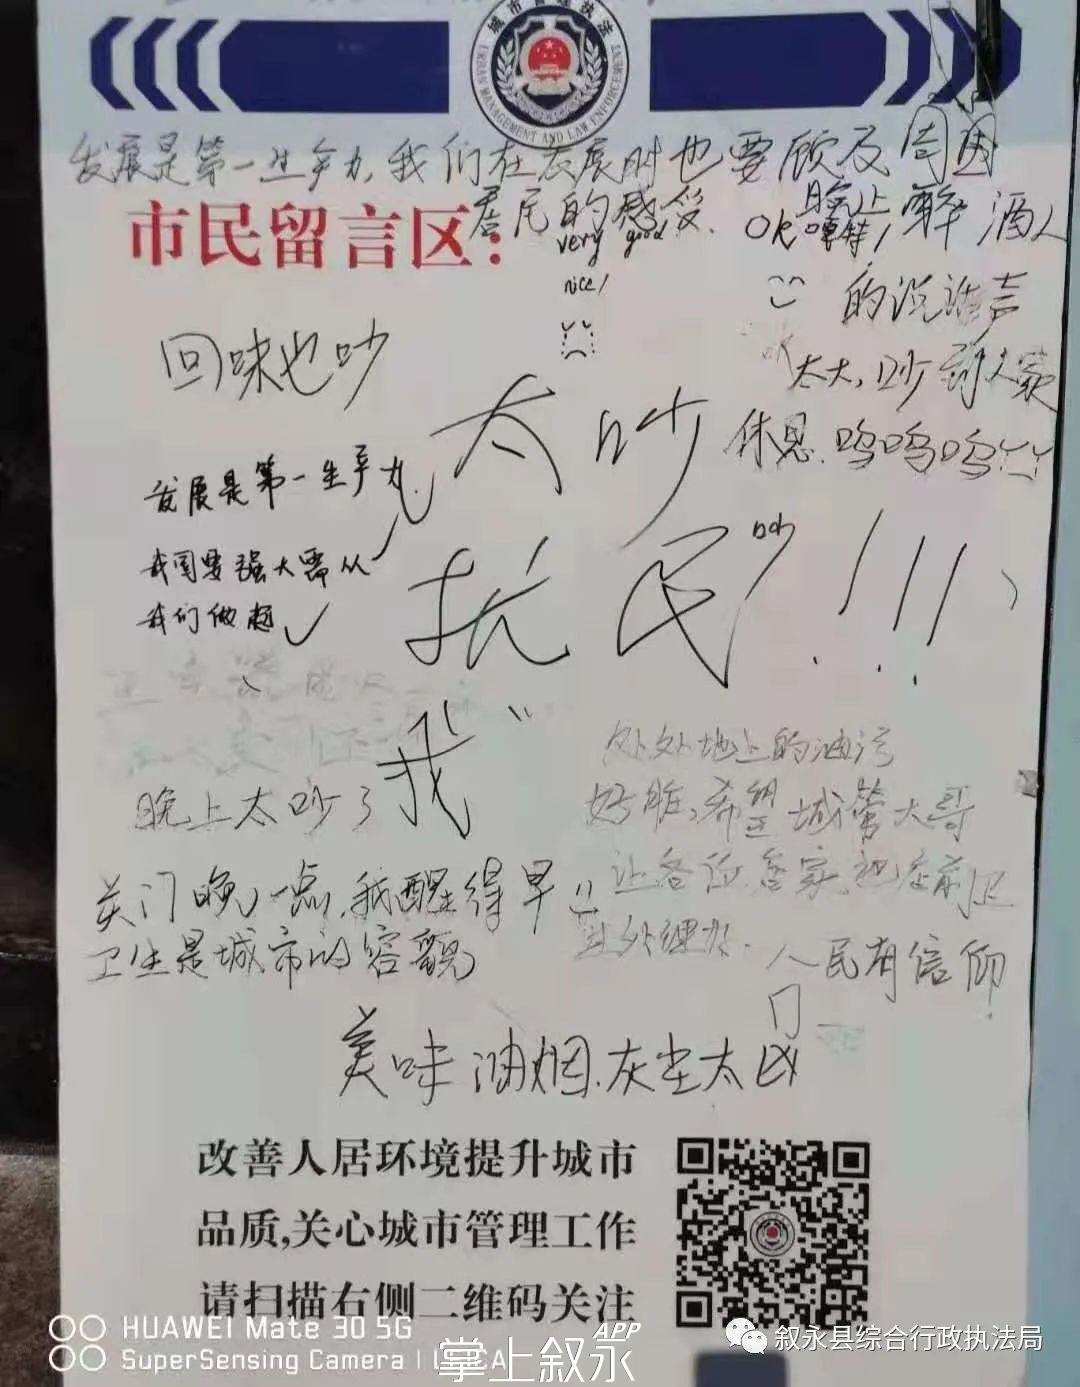 城市管理执法
URBAN MANAGEMENT AND LAW ENFORCEMENT
发展是第一生产力,我们在发展时也要顾及周围
居民的感受.
市民留言区:
very good
nice!
OK 嘿特!
晚上醉酒人
的说话声
太大,吵到大家
休息.呜呜呜
回味也吵
太吵
发展是第一生产力
我国要强大需从
我们做起
扰民 吵!!!
我
晚上太吵了
处处地上的油污
好脏,希望城管大哥
让各位商家把店前卫
生处理好.
关门晚一点,我醒得早
卫生是城市的容貌
人民有信仰
美味油烟.灰尘太凶
改善人居环境提升城市
品质,关心城市管理工作
请扫描右侧二维码关注
HUAWEI Mate 30 5G
SuperSensing Camera | LEICA
掌上叙永 APP
叙永县综合行政执法局